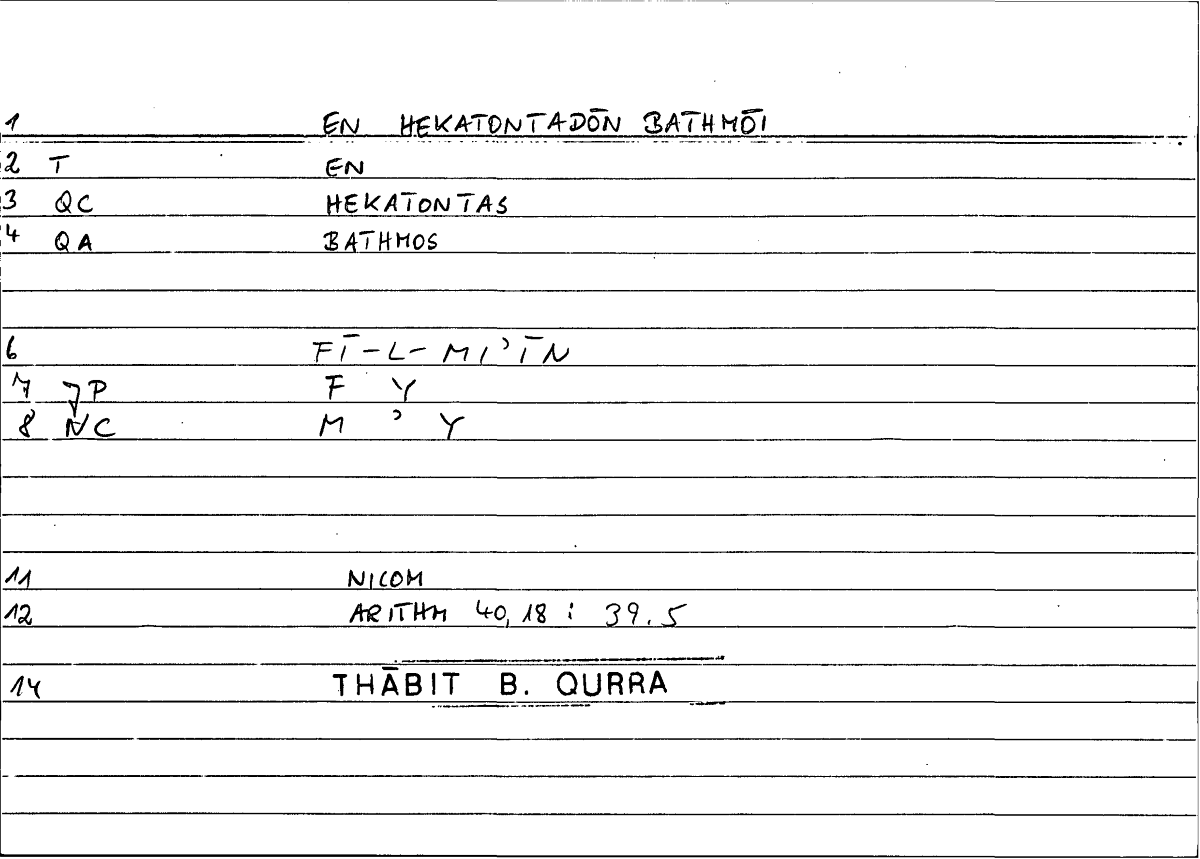 1 EN HEKATONTADŌN BATHMŌI
2 T EN
3 QC HEKATONTAS
4 QA BATHMOS
6 FĪ-L-MI’ĪN
7 JP F Y
8 NC M ’ Y
11 NICOM
12 ARITHM 40,18 : 39.5
14 THĀBIT B. QURRA